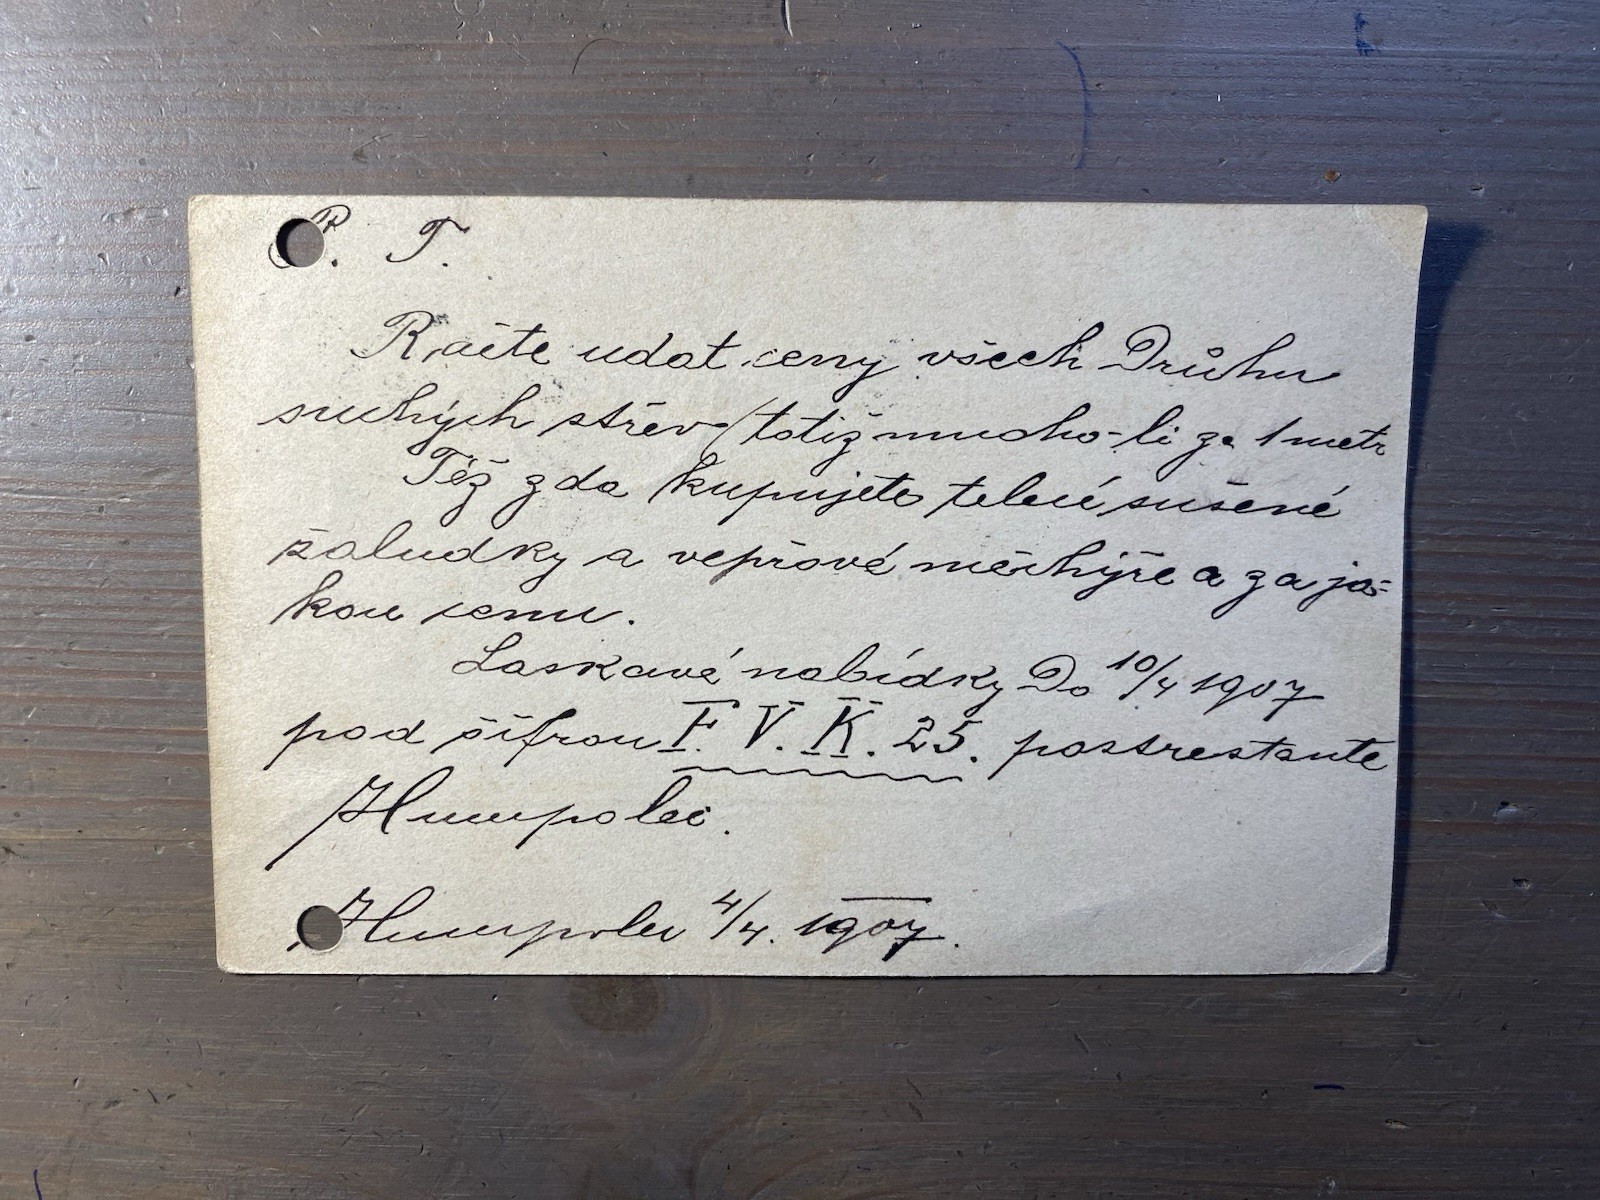 P. T.
Račte udat ceny všech Drůhu
suchých střev (totiž mnoho-li za 1 metr
Též zda kupujete telecí sušené
žaludky a vepřové měchýře a za ja-
kou cenu.
Laskavé nabídky Do 10/4 1907
pod šifrou F. V. K. 25. postrestante
Humpolec.
Humpolec 4/4. 1907.